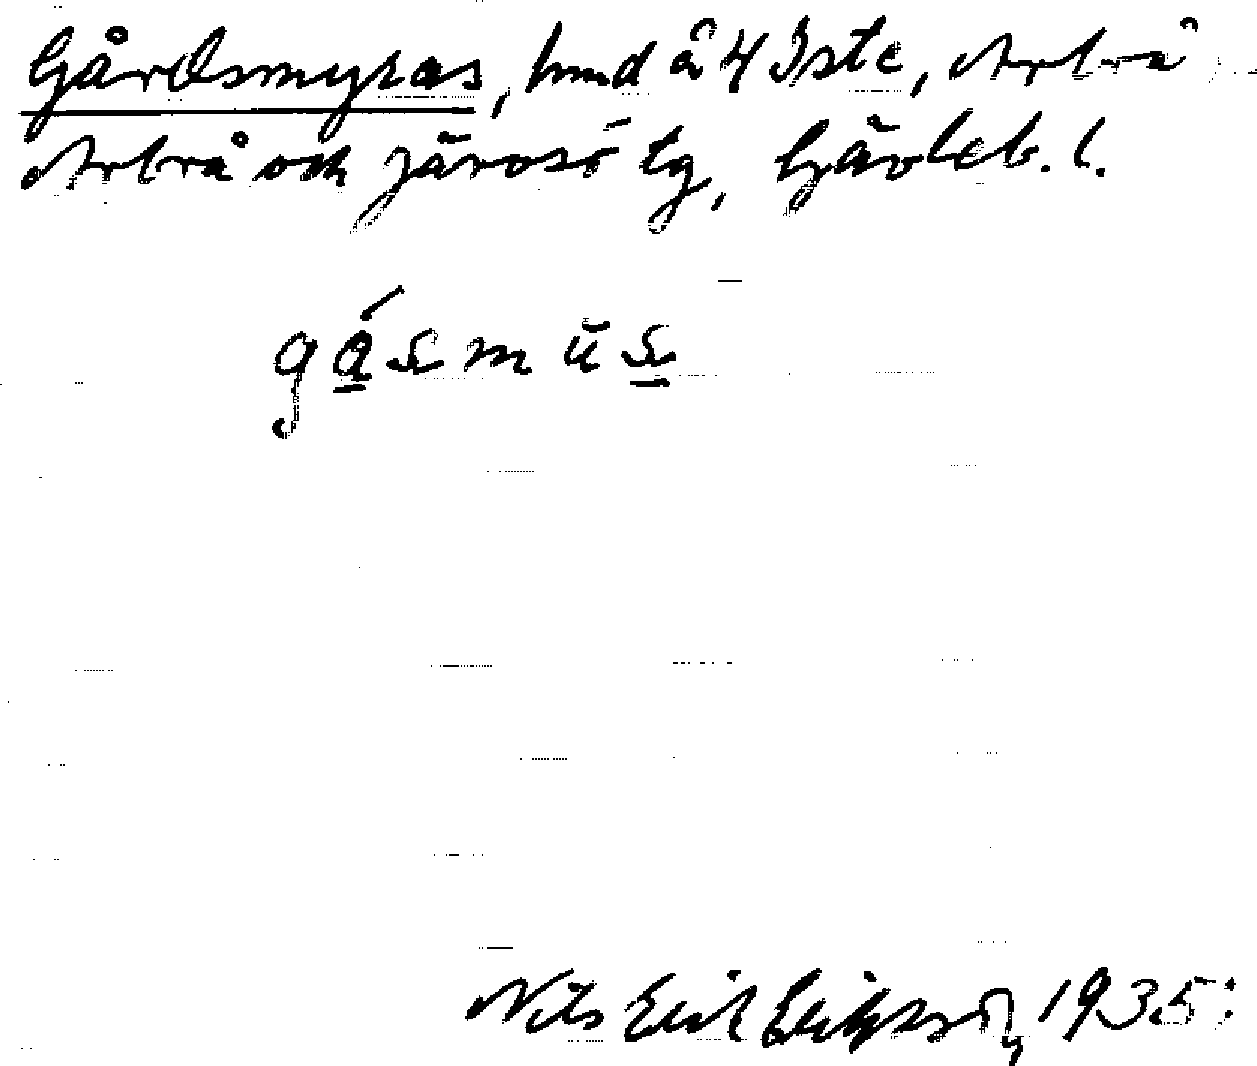 Gårdsmyras, hmd å 4 Iste, Arbrå
Arbrå och Järvsö tg, Gävleb. l.
gásmŭs
Nils Erik Eriksson, 1935.